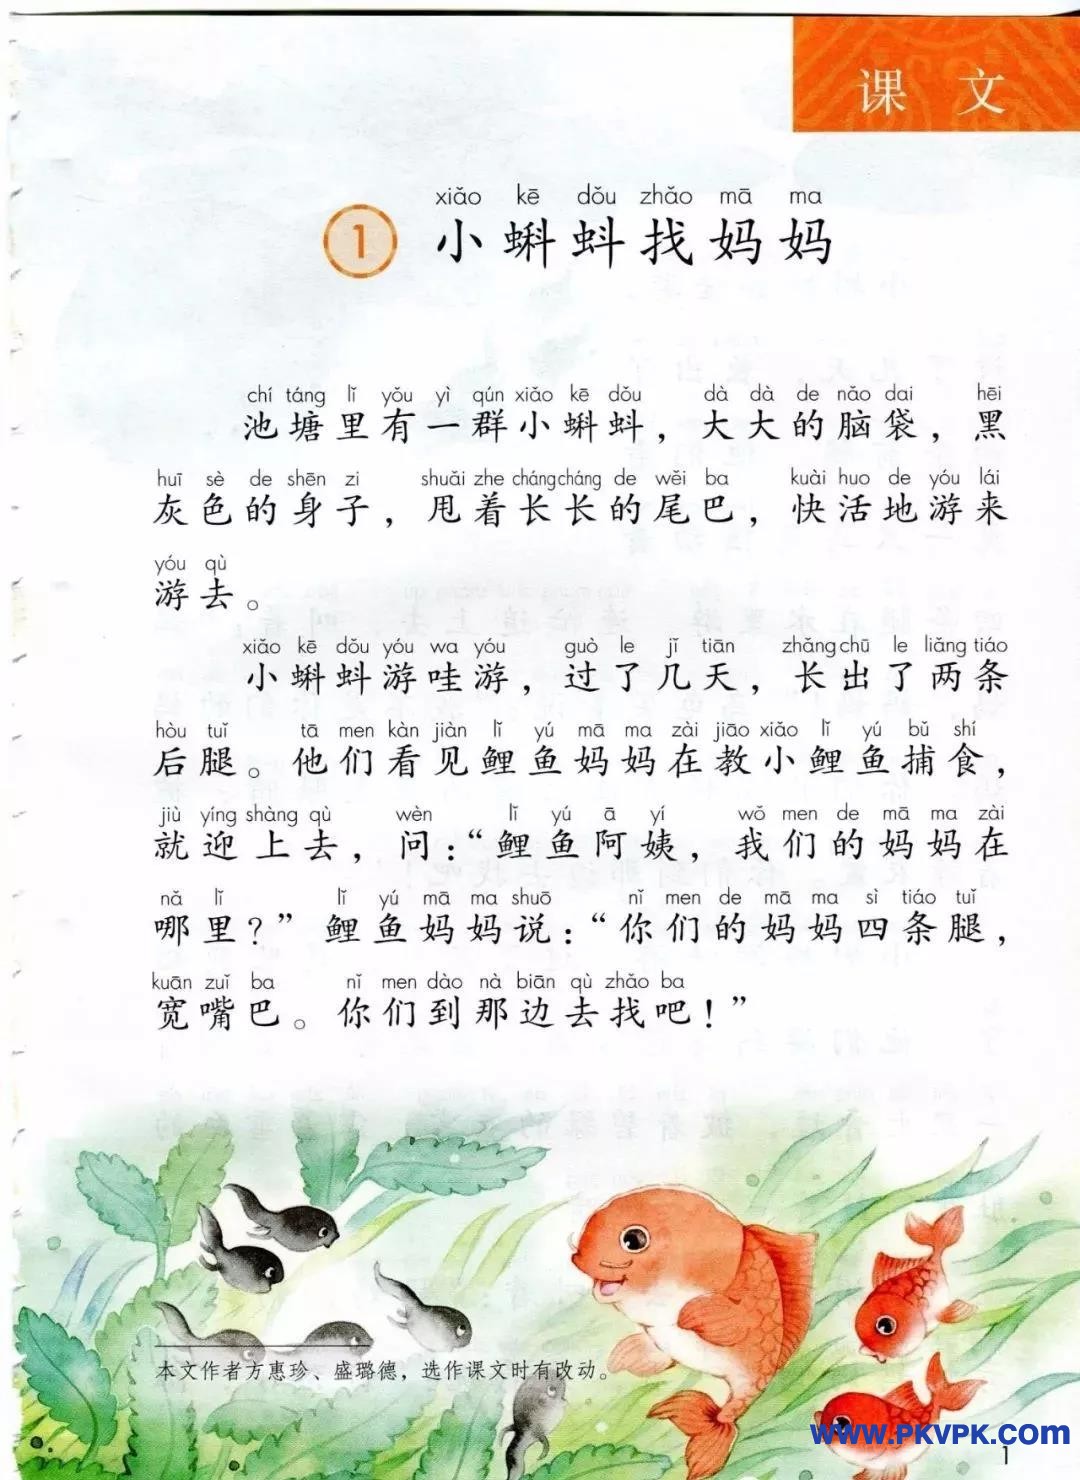 课文
xiǎo kē dǒu zhǎo mā ma
1 小蝌蚪找妈妈
chí táng lǐ yǒu yì qún xiǎo kē dǒu dà dà de nǎo dai hēi
池塘里有一群小蝌蚪，大大的脑袋，黑
huī sè de shēn zi shuǎi zhe cháng cháng de wěi ba kuài huo de yóu lái
灰色的身子，甩着长长的尾巴，快活地游来
yóu qù
游去。
xiǎo kē dǒu yóu wa yóu guò le jǐ tiān zhǎng chū le liǎng tiáo
小蝌蚪游哇游，过了几天，长出了两条
hòu tuǐ tā men kàn jiàn lǐ yú mā ma zài jiāo xiǎo lǐ yú bǔ shí
后腿。他们看见鲤鱼妈妈在教小鲤鱼捕食，
jiù yíng shàng qù wèn lǐ yú ā yí wǒ men de mā ma zài
就迎上去，问：“鲤鱼阿姨，我们的妈妈在
nǎ lǐ lǐ yú mā ma shuō nǐ men de mā ma sì tiáo tuǐ
哪里？”鲤鱼妈妈说：“你们的妈妈四条腿，
kuān zuǐ ba nǐ men dào nà biān qù zhǎo ba
宽嘴巴。你们到那边去找吧！”
本文作者方惠珍、盛璐德，选作课文时有改动。
www.PKVPK.com
1